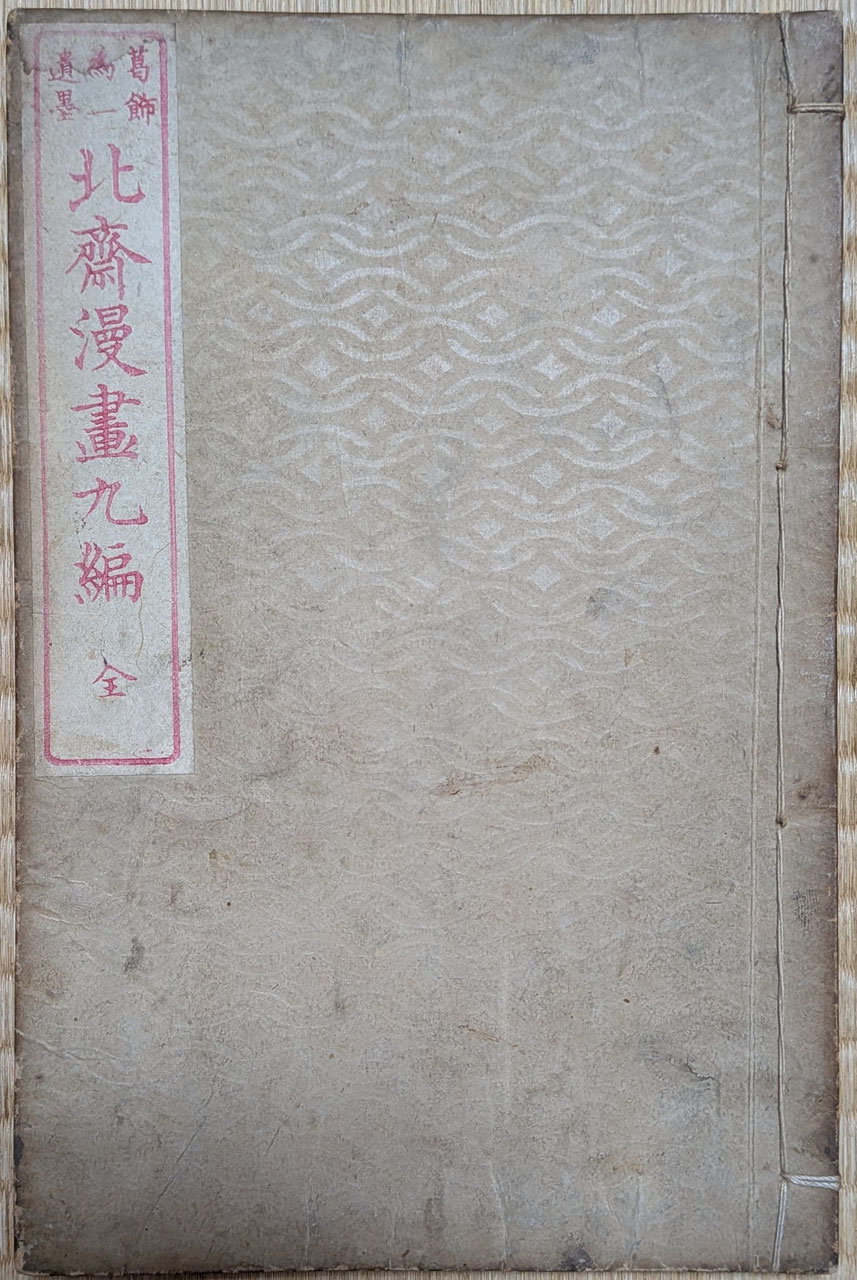 葛飾
為一
遺墨
北齋漫畫九編 全